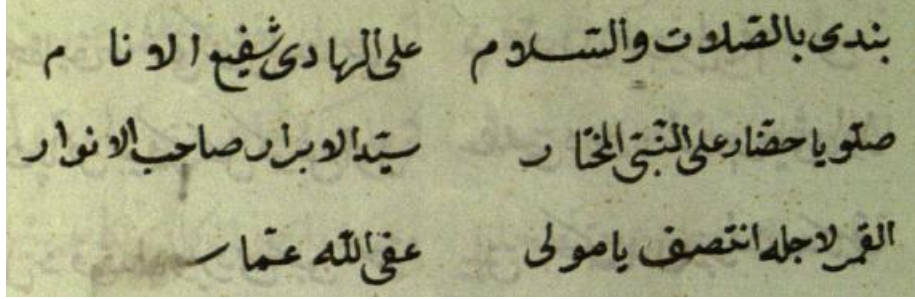 بندى بالصّلات والتسلام على الهادى شفيع الانام
صلّو يا حضّار على النّبىّ المختار سيّد الابرار صاحب الانوار
القمر لاجله انتصف يا مولى عفى الله عمّا